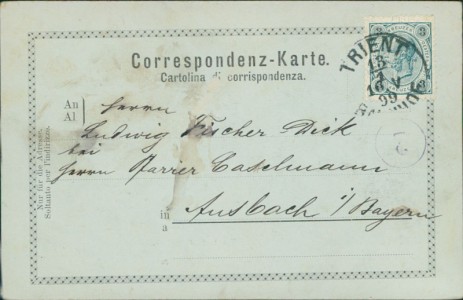 Correspondenz-Karte.
Cartolina di corrispondenza.
TRIENT
99
3
3
An
Al
Herrn
Ludwig Fischer Dick
bei
Herrn Pfarrer Caselmann
in
a
Ansbach i/Bayern
Nur für die Adresse.
Soltanto per l'indirizzo.